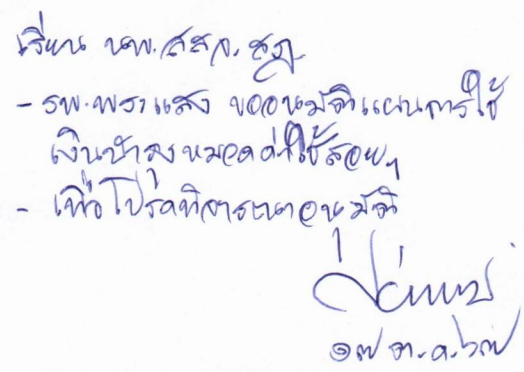 เรียน นพ.สสจ.สฎ.
- รพ.พระแสง ขออนุมัติแผนการใช้
เงินบำรุงหมวดค่าใช้สอยฯ
- เพื่อโปรดพิจารณาอนุมัติ
๑๗ ต.ค. ๖๗